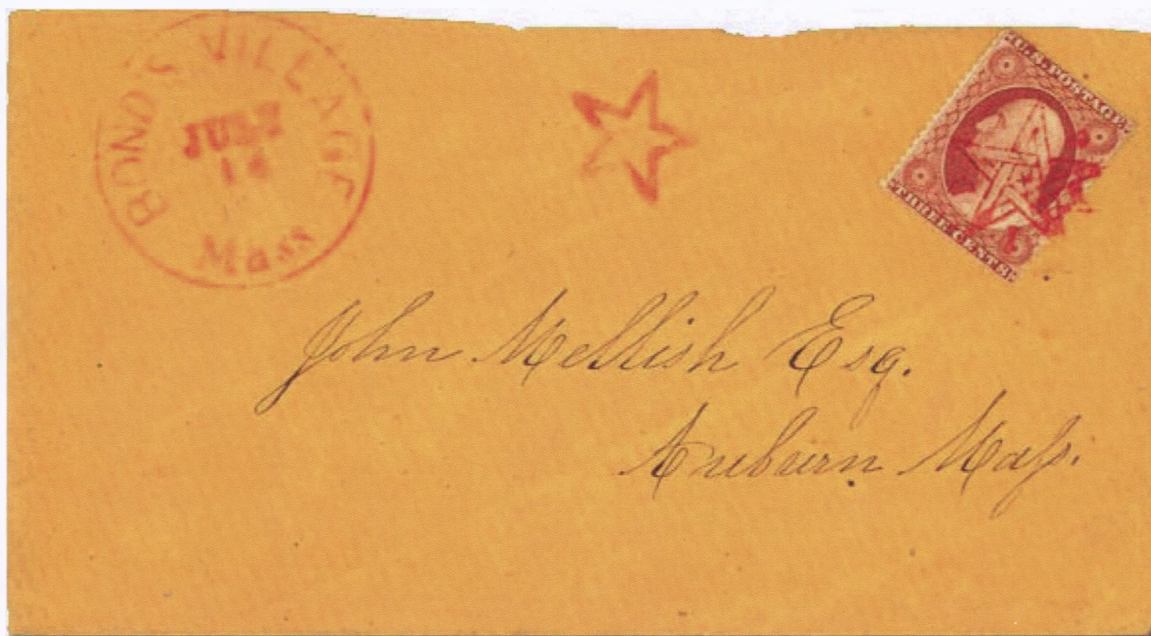 BOND'S VILLAGE
JULY
14
Mass
U.S. POSTAGE
THREE CENTS
John Mellish Esq.
Auburn Mass.